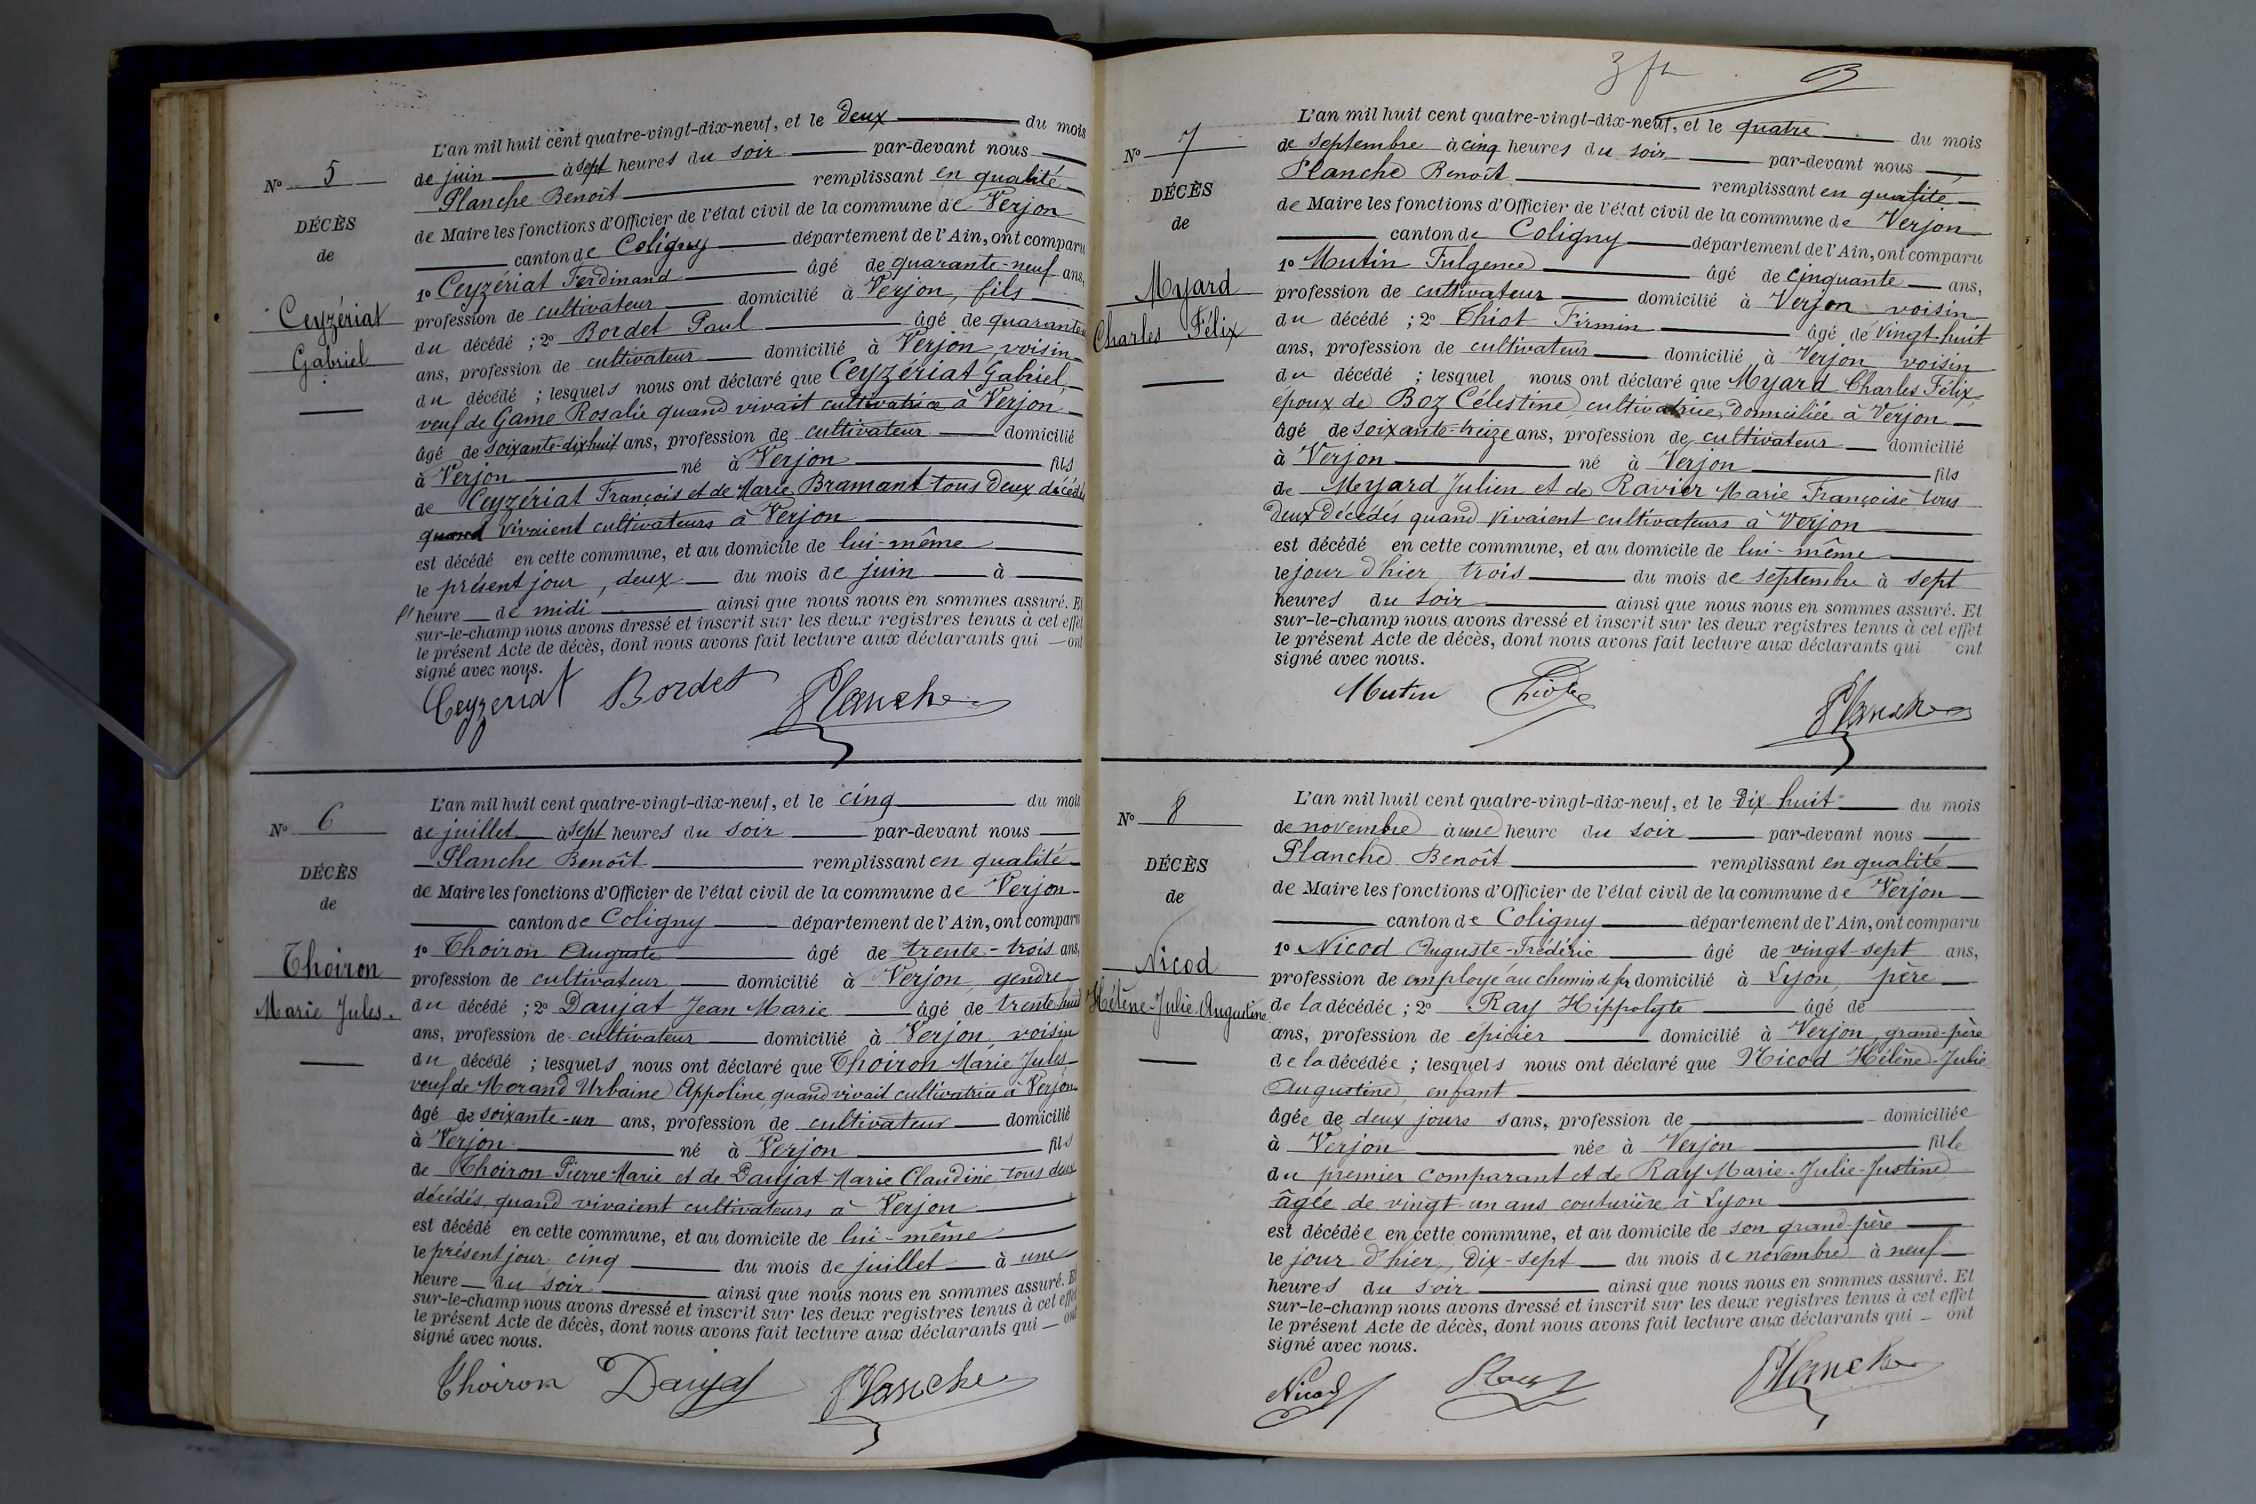 N° 5
DÉCÈS
de
Ceyzériat
Gabriel
L'an mil huit cent quatre-vingt-dix-neuf, et le deux du mois
de juin à sept heures du soir par-devant nous
Planche Benoît remplissant en qualité
de Maire les fonctions d'Officier de l'état civil de la commune de Verjon
canton de Coligny département de l'Ain, ont comparu
1° Ceyzériat Ferdinand âgé de quarante-neuf ans,
profession de cultivateur domicilié à Verjon, fils
du décédé ; 2° Bordet Paul âgé de quarante
ans, profession de cultivateur domicilié à Verjon, voisin
du décédé ; lesquels nous ont déclaré que Ceyzériat Gabriel,
veuf de Game Rosalie quand vivait cultivatrice à Verjon
âgé de soixante-dix huit ans, profession de cultivateur domicilié
à Verjon né à Verjon fils
de Ceyzériat François et de Marie Bramant tous deux décédés
quand vivaient cultivateurs à Verjon
est décédé en cette commune, et au domicile de lui-même
le présent jour, deux du mois de juin à
l'heure de midi ainsi que nous nous en sommes assuré. Et
sur-le-champ nous avons dressé et inscrit sur les deux registres tenus à cet effet
le présent Acte de décès, dont nous avons fait lecture aux déclarants qui ont
signé avec nous.
Ceyzeriat Bordet Planche
N° 6
DÉCÈS
de
Thoiron
Marie Jules.
L'an mil huit cent quatre-vingt-dix-neuf, et le cinq du mois
de juillet à sept heures du soir par-devant nous
Planche Benoît remplissant en qualité
de Maire les fonctions d'Officier de l'état civil de la commune de Verjon
canton de Coligny département de l'Ain, ont comparu
1° Thoiron Auguste âgé de trente-trois ans,
profession de cultivateur domicilié à Verjon, gendre
du décédé ; 2° Daujat Jean Marie âgé de trente-huit
ans, profession de cultivateur domicilié à Verjon, voisin
du décédé ; lesquels nous ont déclaré que Thoiron Marie Jules
veuf de Morand Urbaine Appoline, quand vivait cultivatrice à Verjon
âgé de soixante-un ans, profession de cultivateur domicilié
à Verjon né à Verjon fils
de Thoiron Pierre Marie et de Daujat Marie Claudine tous deux
décédés, quand vivaient cultivateurs à Verjon
est décédé en cette commune, et au domicile de lui-même
le présent jour, cinq du mois de juillet à une
heure du soir ainsi que nous nous en sommes assuré. Et
sur-le-champ nous avons dressé et inscrit sur les deux registres tenus à cet effet
le présent Acte de décès, dont nous avons fait lecture aux déclarants qui ont
signé avec nous.
Thoiron Daujat Planche
N° 7
DÉCÈS
de
Myard
Charles Félix
L'an mil huit cent quatre-vingt-dix-neuf, et le quatre du mois
de septembre à cinq heures du soir par-devant nous
Planche Benoît remplissant en qualité
de Maire les fonctions d'Officier de l'état civil de la commune de Verjon
canton de Coligny département de l'Ain, ont comparu
1° Mutin Fulgence âgé de cinquante ans,
profession de cultivateur domicilié à Verjon voisin
du décédé ; 2° Thiot Firmin âgé de vingt-huit
ans, profession de cultivateur domicilié à Verjon voisin
du décédé ; lesquel nous ont déclaré que Myard Charles Félix,
époux de Boz Célestine, cultivatrice, domiciliée à Verjon
âgé de soixante-treize ans, profession de cultivateur domicilié
à Verjon né à Verjon fils
de Meyard Julien et de Ravier Marie Françoise tous
deux décédés quand vivaient cultivateurs à Verjon
est décédé en cette commune, et au domicile de lui-même
le jour d'hier, trois du mois de septembre à sept
heures du soir ainsi que nous nous en sommes assuré. Et
sur-le-champ nous avons dressé et inscrit sur les deux registres tenus à cet effet
le présent Acte de décès, dont nous avons fait lecture aux déclarants qui ont
signé avec nous.
Mutin Planche
N° 8
DÉCÈS
de
Nicod
Hélène-Julie Augustine
L'an mil huit cent quatre-vingt-dix-neuf, et le Dix-huit du mois
de novembre à une heure du soir par-devant nous
Planche Benoît remplissant en qualité
de Maire les fonctions d'Officier de l'état civil de la commune de Verjon
canton de Coligny département de l'Ain, ont comparu
1° Nicod Auguste-Frédéric âgé de vingt-sept ans,
profession de employé au chemin de fer domicilié à Lyon, père
de la décédée ; 2° Ray Hippolyte âgé de
ans, profession de épicier domicilié à Verjon, grand-père
de la décédée ; lesquels nous ont déclaré que Nicod Hélène-Julie
Augustine, enfant
âgée de deux jours sans, profession de domiciliée
à Verjon née à Verjon fille
du premier comparant et de Ray Marie-Julie-Justine
âgée de vingt-un ans couturière à Lyon
est décédée en cette commune, et au domicile de son grand-père
le jour d'hier, Dix-sept du mois de novembre à neuf
heures du soir ainsi que nous nous en sommes assuré. Et
sur-le-champ nous avons dressé et inscrit sur les deux registres tenus à cet effet
le présent Acte de décès, dont nous avons fait lecture aux déclarants qui ont
signé avec nous.
Nicod Planche